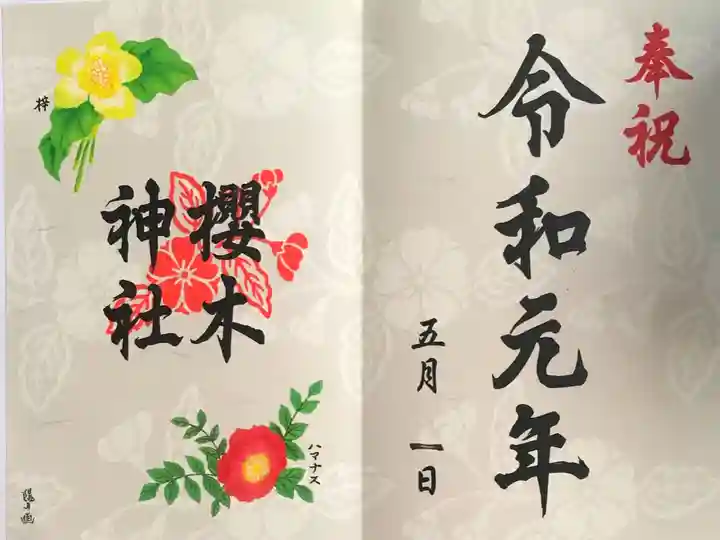 奉祝
令和元年
五月一日
櫻木
神社
梓
ハマナス